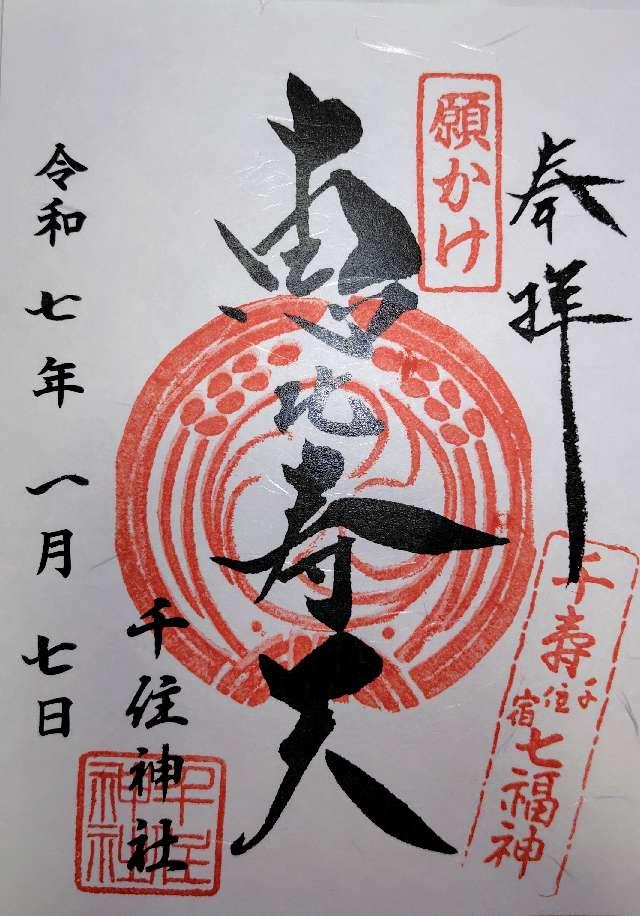 奉拝
願かけ
恵比寿天
千寿
千住宿
七福神
千住神社
千住
神社
令和七年一月七日